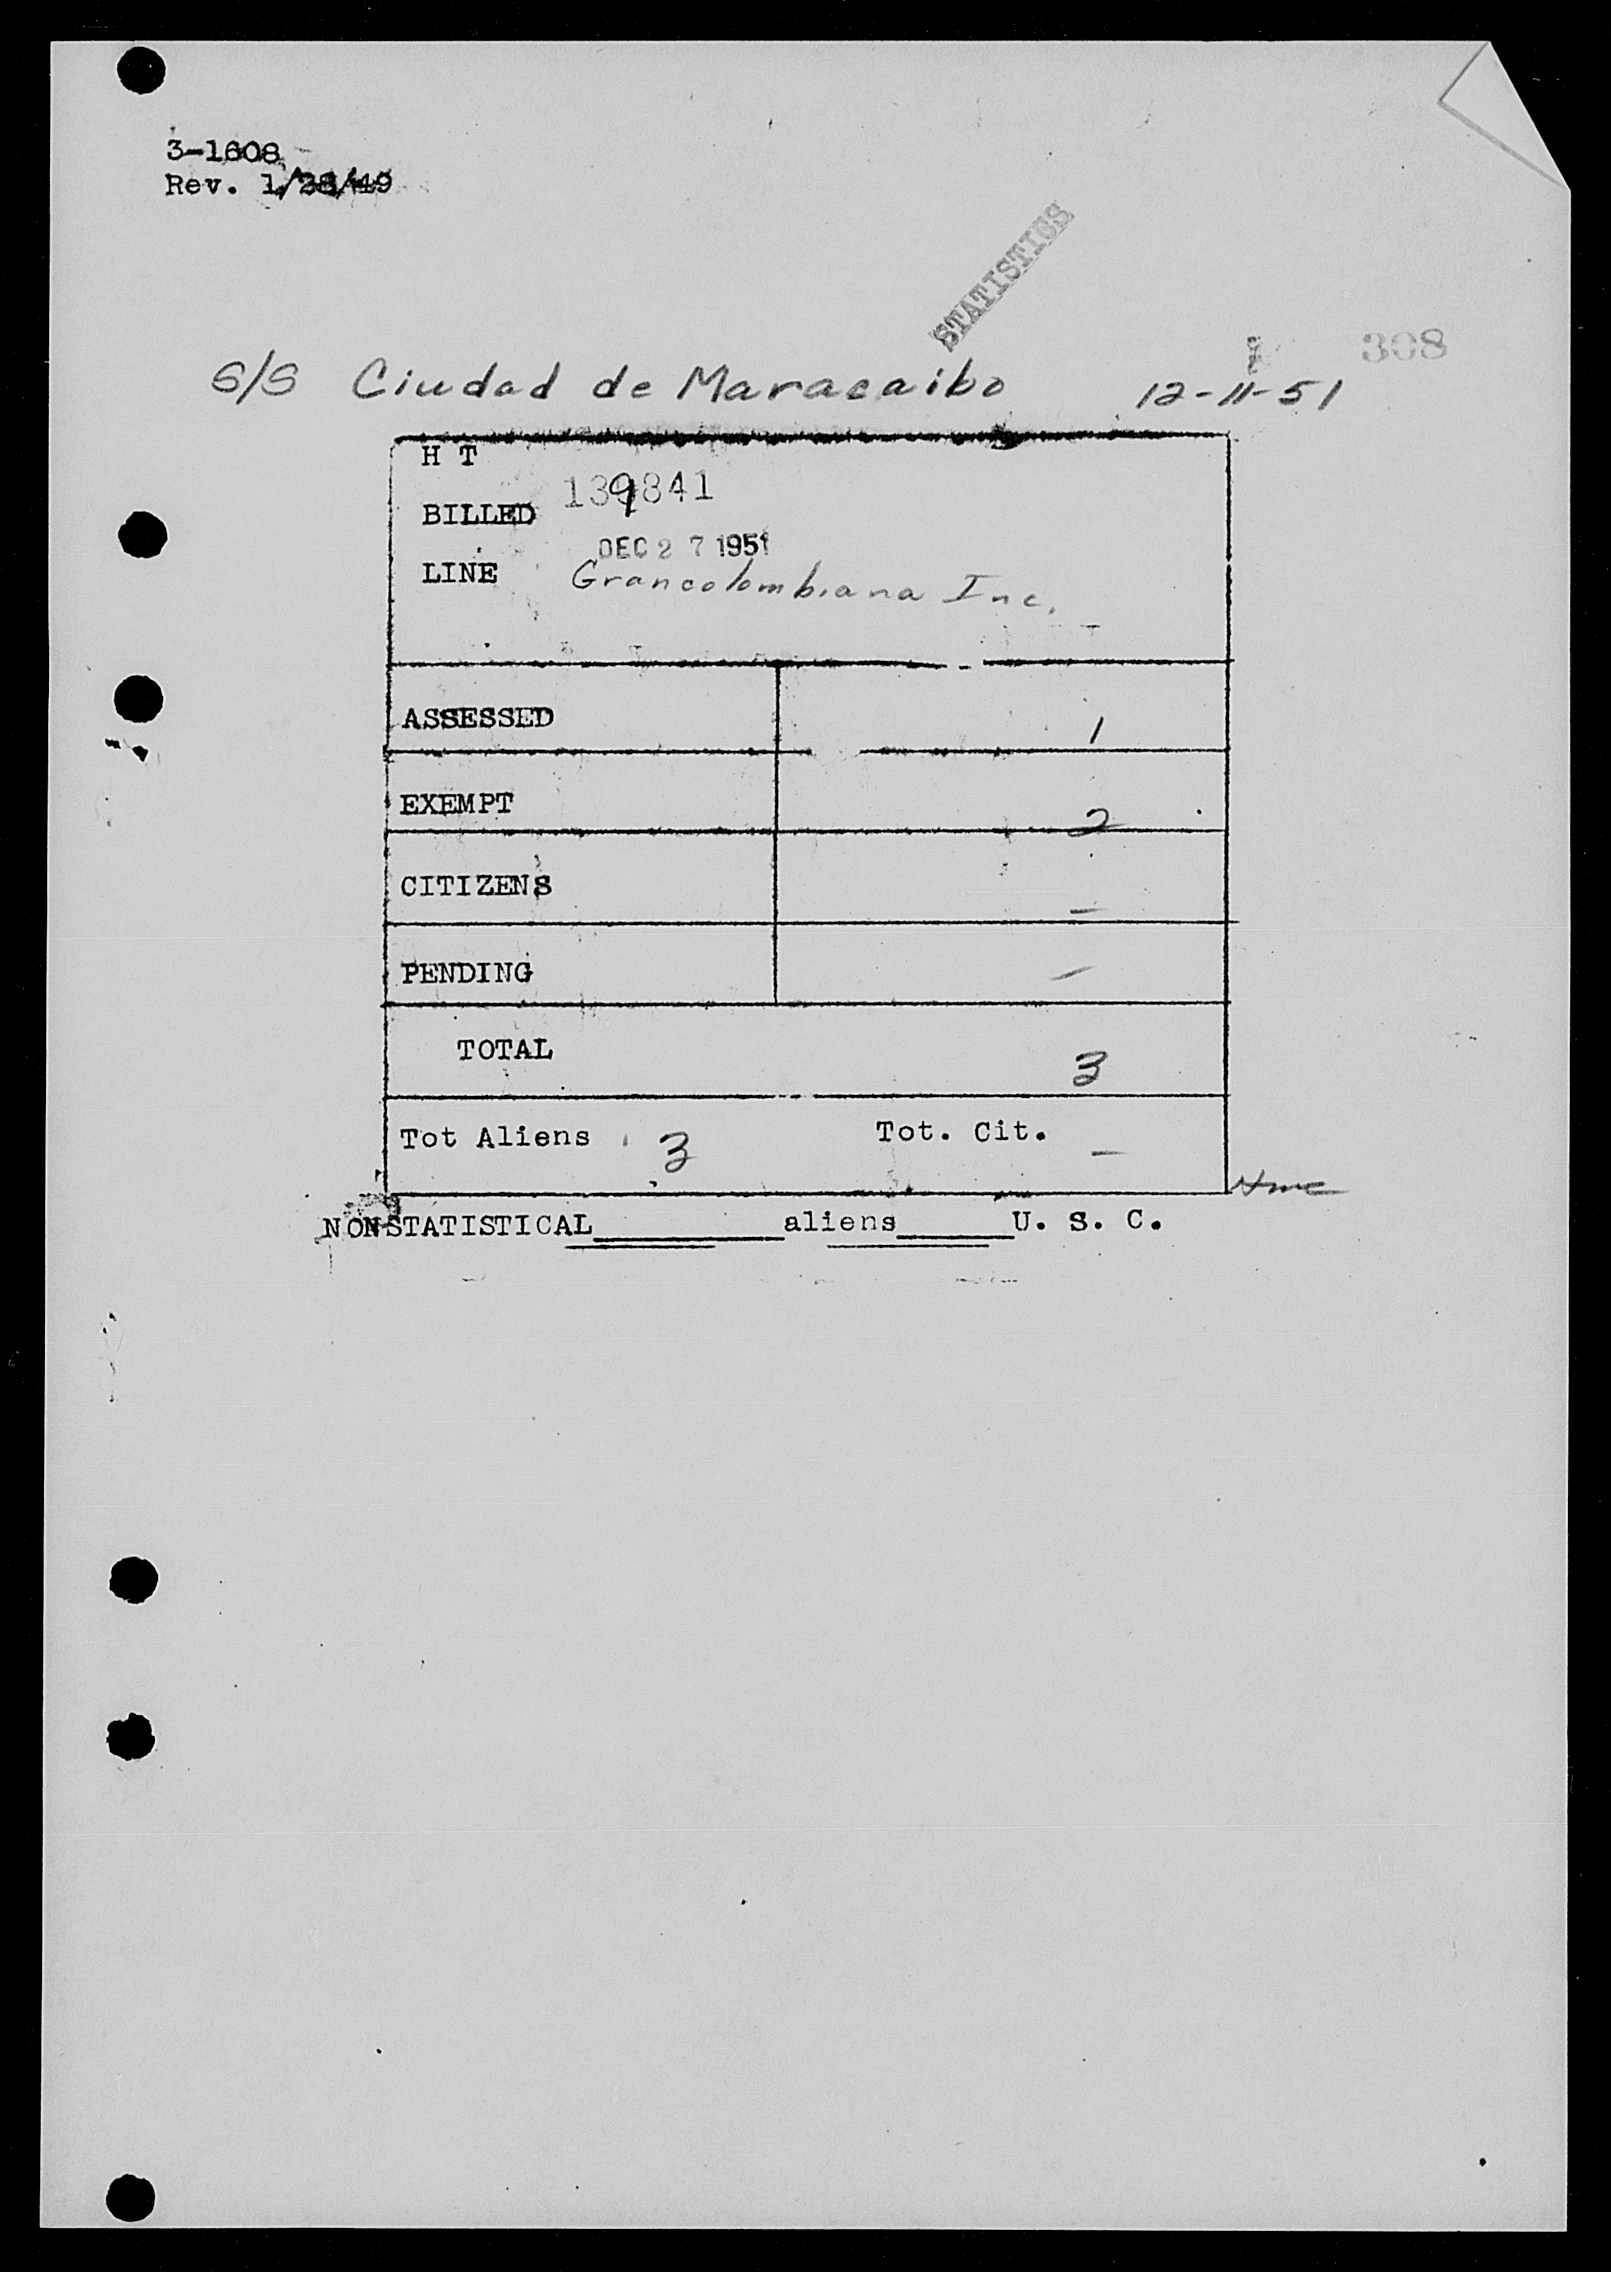 3-1608
Rev. 1/28/49
STATISTICS
308
S/S Ciudad de Maracaibo 12-11-51
H T
BILLED 139841
DEC 27 1951
LINE Grancolombiana Inc.
ASSESSED 1
EXEMPT 2
CITIZENS -
PENDING -
TOTAL 3
Tot Aliens 3 Tot. Cit. -
NONSTATISTICAL__________aliens______U. S. C.